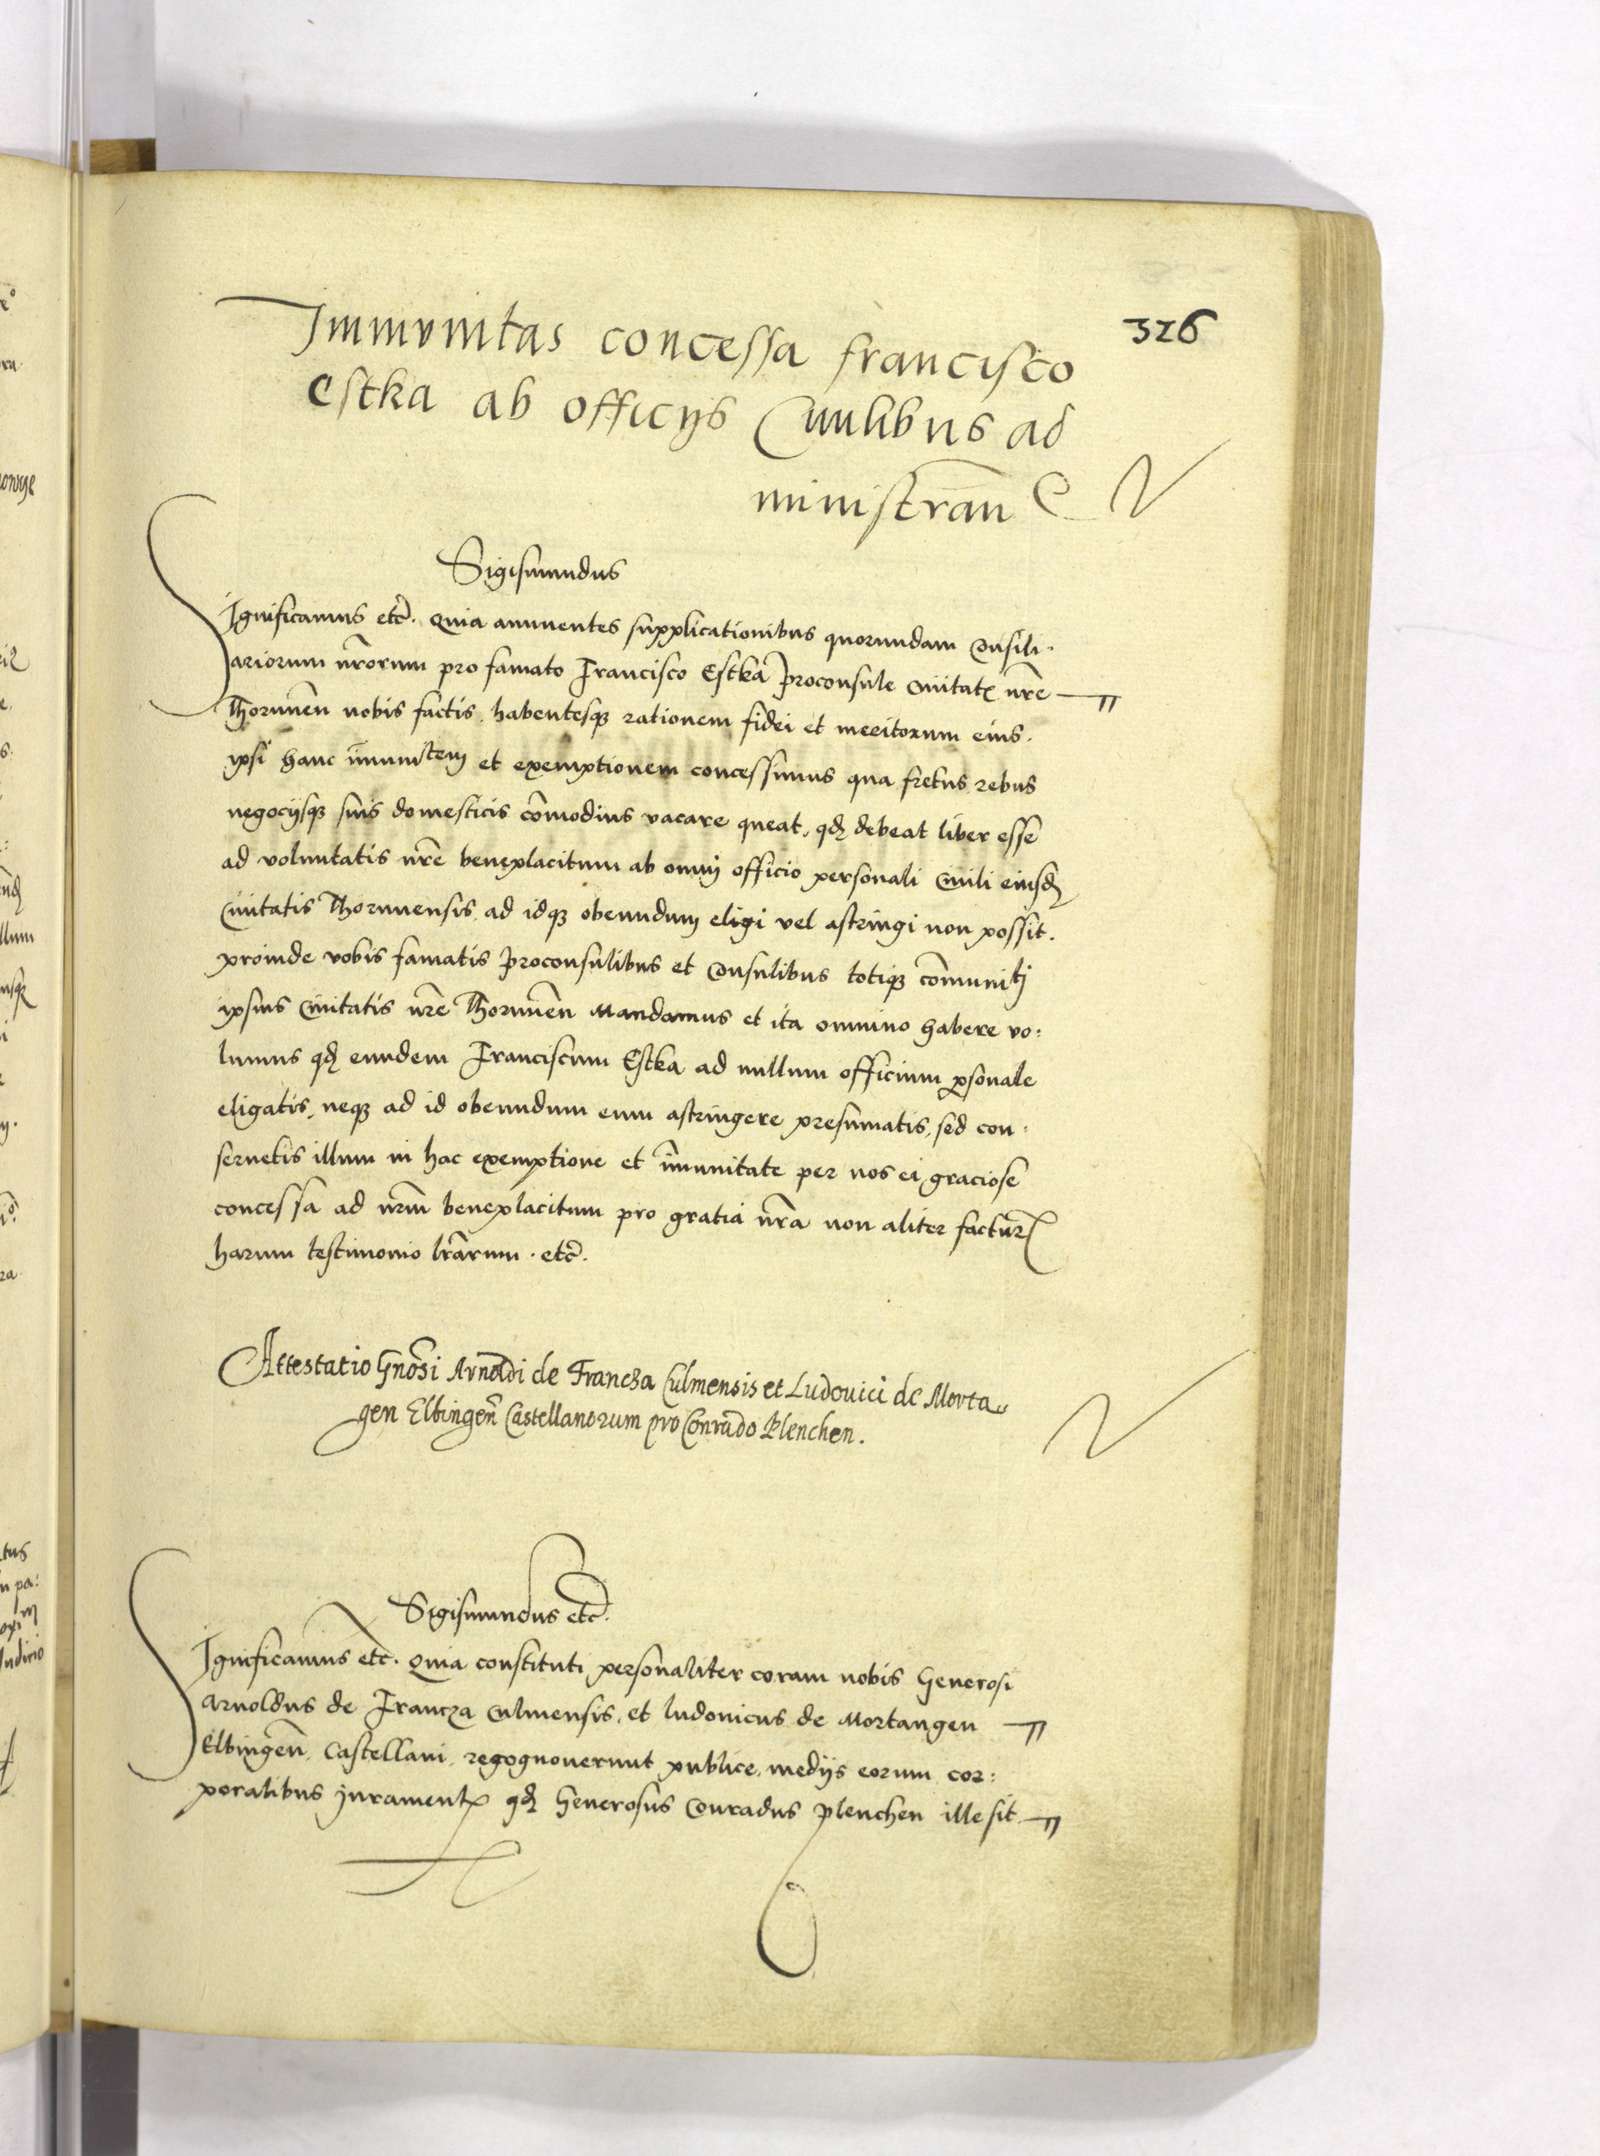 326
Immvnitas concessa francisco
Estka ab officijs Ciuilibus ad
ministran̄
Sigismundus
Significamus etc̄. Quia annuentes supplicationibus quorundam Consili-
ariorum nr̄orum pro famato Francisco Estka Proconsule Ciuitatꝭ nr̄e
Thorunen̄ nobis factis, habentesqꝫ rationem fidei et meritorum eius.
ipsi hanc im̄unitem et exemptionem concessimus qua fretus rebus
negocijsqꝫ suis domesticis com̄odius vacare queat, qđ debeat liber esse
ad voluntatis nr̄e beneplacitum ab omni officio personali Ciuili eiusđ
Ciuitatis Thorunensis, ad idqꝫ obeundum eligi vel astringi non possit.
proinde vobis famatis Proconsulibus et Consulibus totiqꝫ com̄unitj
ipsius Ciuitatis nr̄e Thorunen̄ Mandamus et ita omnino habere vo:
lumus qđ eundem Franciscum Estka ad nullum officium ꝑsonale
eligatis, neqꝫ ad id obeundum eum astringere presumatis, sed con:
seruetis illum in hac exemptione et im̄unitate per nos ei graciose
concessa ad nr̄m beneplacitum pro gratia nr̄a non aliter facturꝭ
harum testimonio lr̄arum. etc̄.
Attestatio Gnōsi Arnoldi de Francza Culmensis et Ludouici de Morta
gen Elbingen̄ Castellanorum pro Conrado Plenchen.
Sigismundus etc̄.
Significamus etc̄. Quia constituti personaliter coram nobis Generosi
Arnoldus de Francza Culmensis, et Ludouicus de Mortangen
Elbingen̄, Castellani, regognouerunt publice, medijs eorum cor:
poralibus juramentꝭ qđ Generosus Conradus Plenchen ille sit